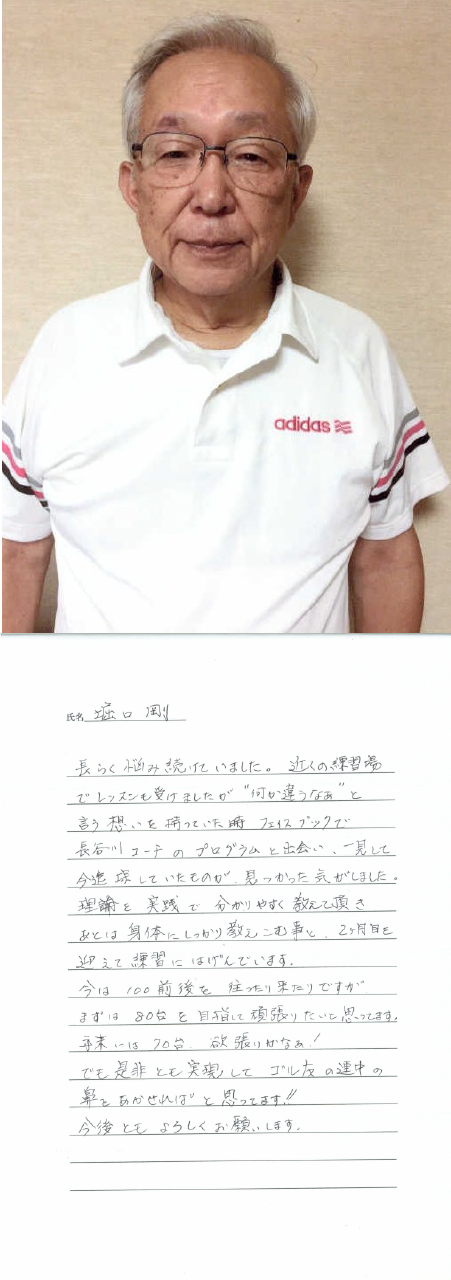 adidas
氏名 堀口 剛
長らく悩み続けていました。近くの練習場
でレッスンも受けましたが"何か違うなぁ"と
言う想いを持っていた時 フェイスブックで
長谷川コーチのプログラムと出会い、一見して
今迄探していたものが、見つかった気がしました。
理論を実践で分かりやすく教えて頂き
あとは身体にしっかり教えこむ事と、2ヶ月目を
迎えて練習にはげんでいます。
今は100前後を往ったり来たりですが
まずは80台を目指して頑張りたいと思ってます。
年末には70台、欲張りかなぁ!
でも是非とも実現して ゴル友の連中の
鼻をあかせればと思ってます!!
今後ともよろしくお願いします。